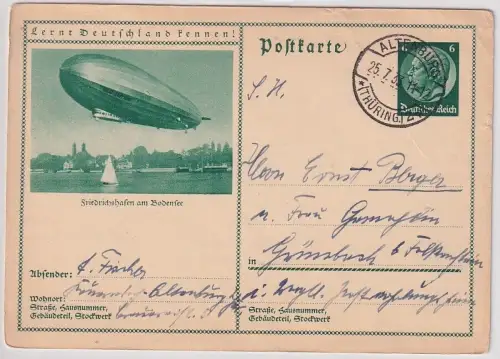 Lernt Deutschland kennen!
Postkarte
6
ALTENBURG
25.7.
(THÜRING.)
Deutsches Reich
S. H.
Herrn Ernst Berger
u. Frau Gemahlin
Friedrichshafen am Bodensee
Grünbach b. Falkenstein
in
Absender: A. Fischer
Altenburg
Wohnort:
Straße, Hausnummer,
Gebäudeteil, Stockwerk
i. Vogtl.
Straße, Hausnummer,
Gebäudeteil, Stockwerk